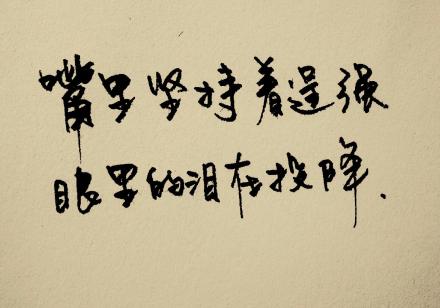 嘴里坚持着逞强
眼里的泪在投降.